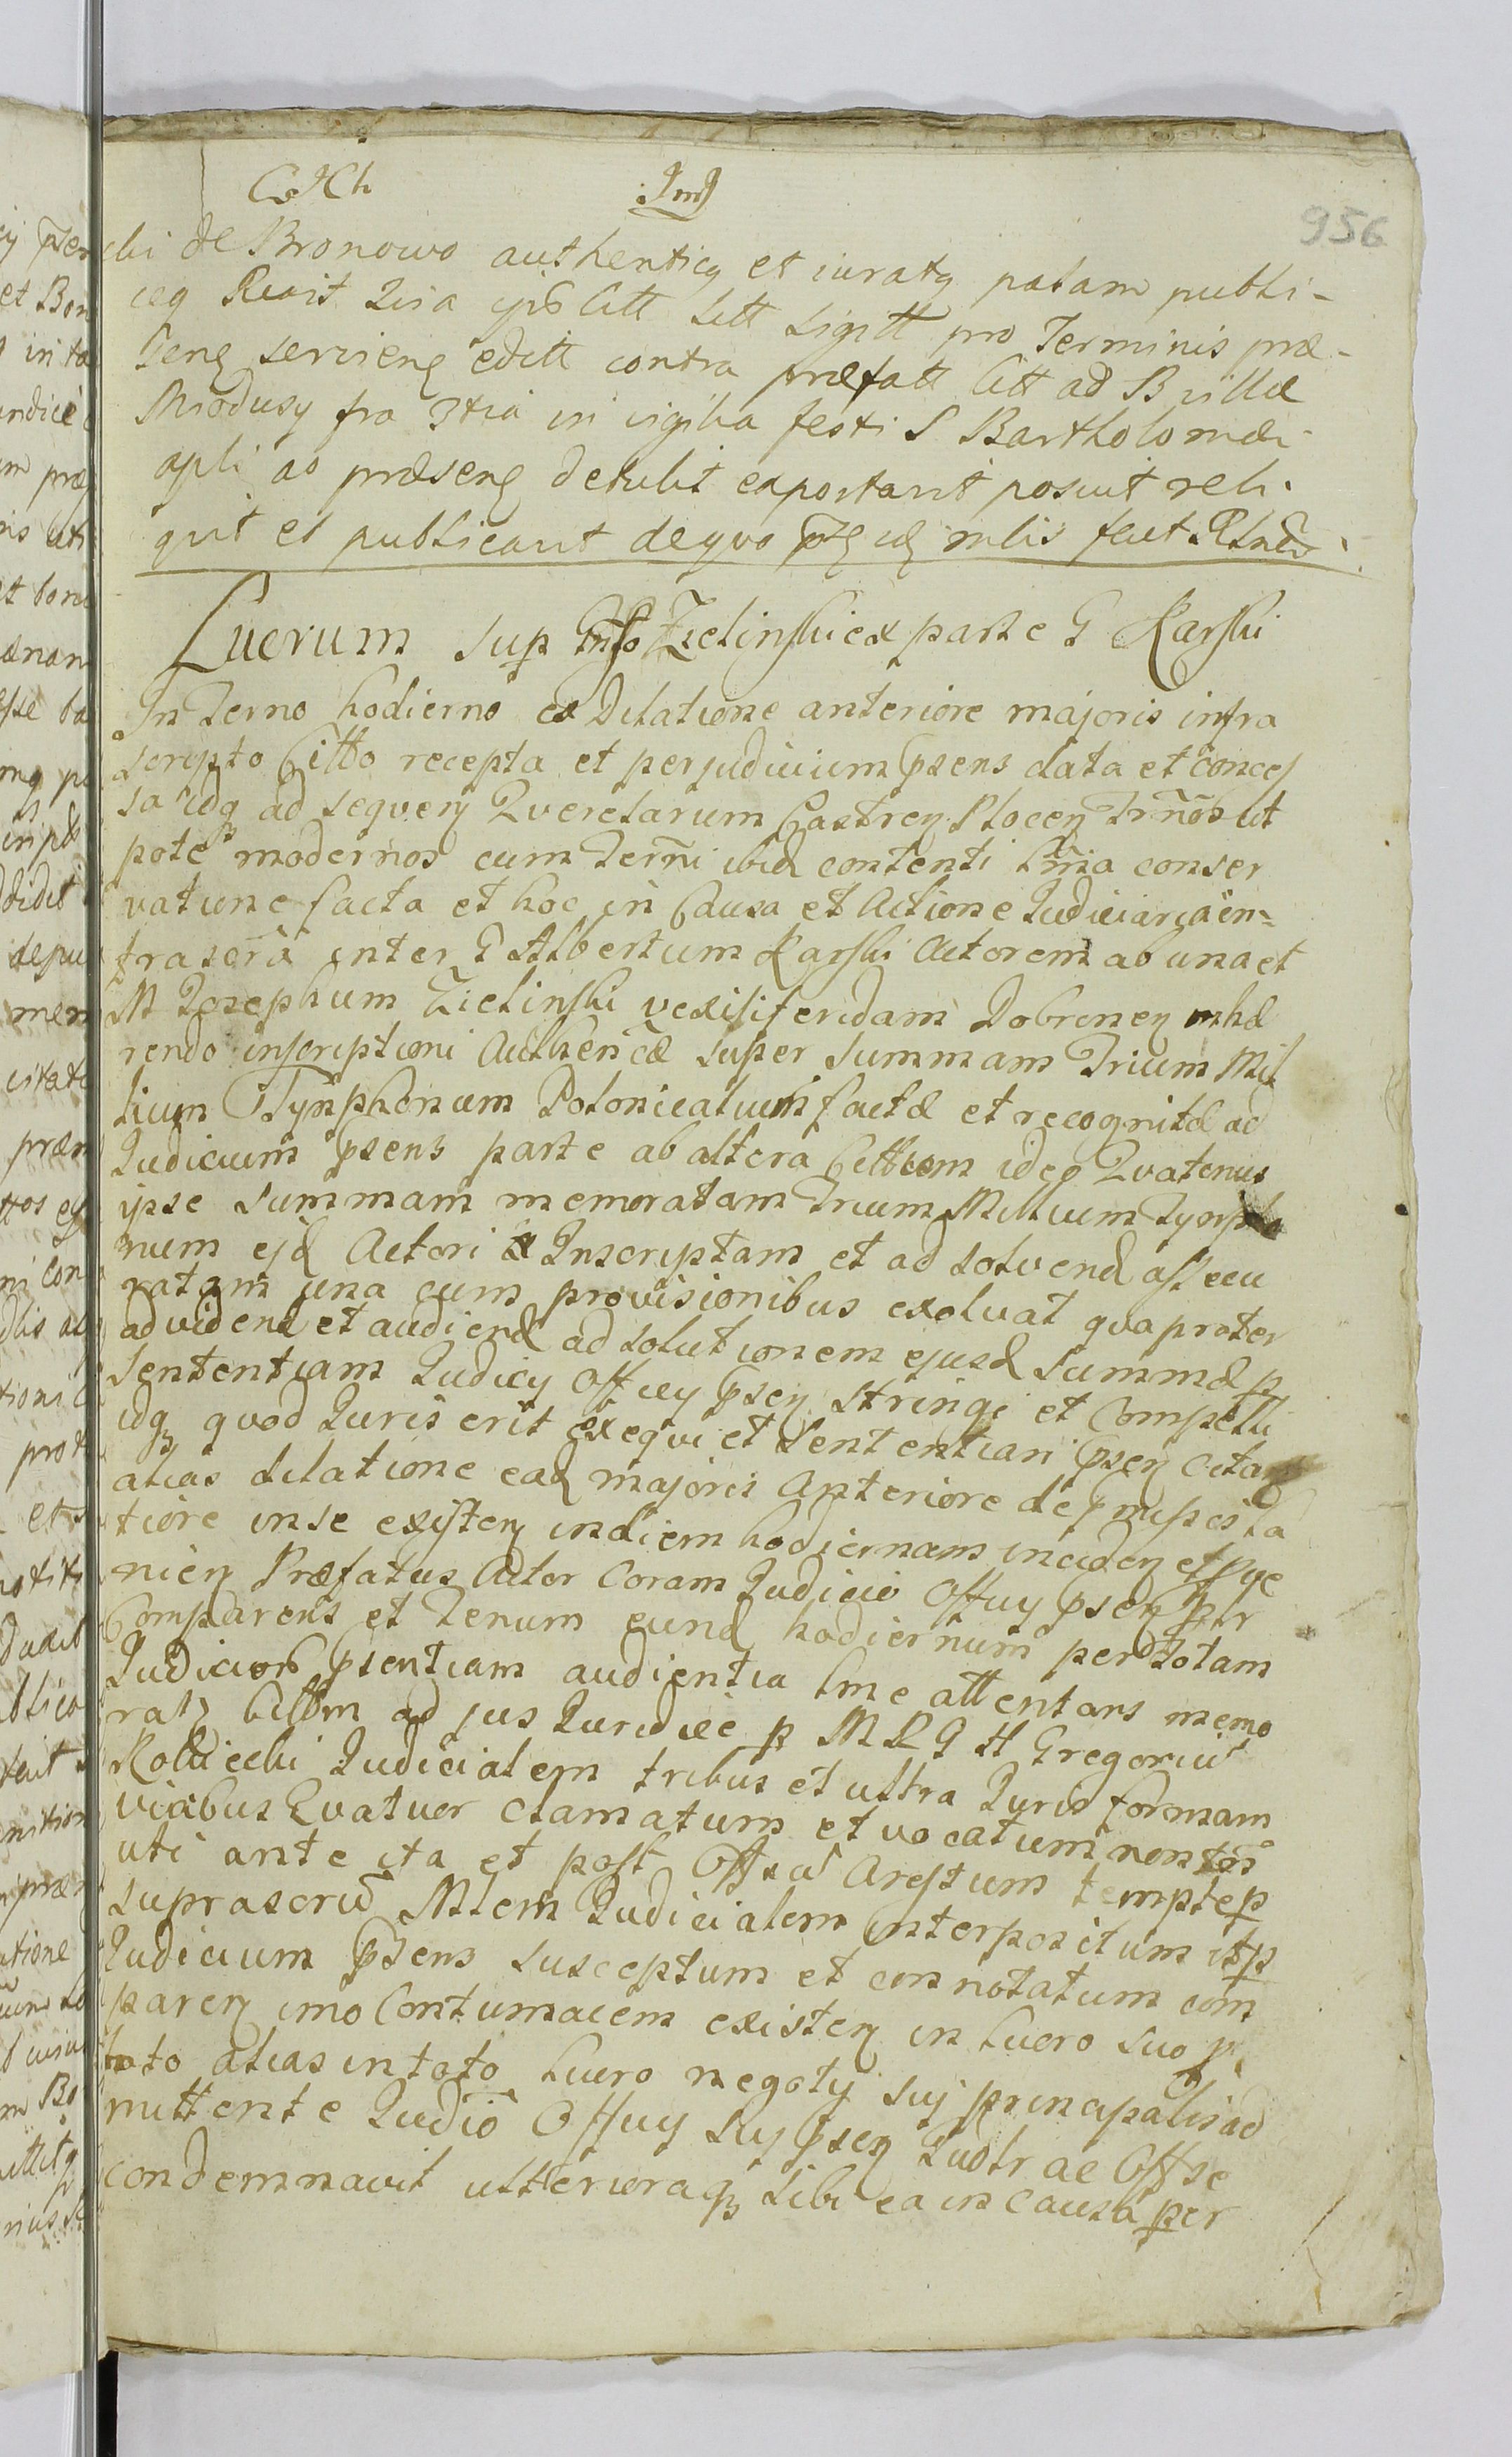 956
ski de Bronowo authenticq et iuratq palam publi-
ceq Rcavit Quia ipse Citt Litt Sigitt pro Terminis præ-
senq servienq editt contra præfatt Citt ad B villæ
Miodusy fra 3tia in vigilia festi S Bartholomæi
apli ao præsenq detulit exportavit posuit reli-
qit et publicavit de quo
Lucrum sup Gnso Zielinski ex parte G Karski
In Termo hodierno ex Dilatione anteriore majoris infra
scripto Citto recepta et per judicium psens data et conces
sa idq ad sequenq Querelarum Castrenq Plocenq Trnos ut
pote modernos cum Termi ibid contenti Lmia conser
vatione facta et hoc in Causa et Actione Judiciaria in-
frascra inter G Albertum Karski Actorem ab una et
M Josephum Zielinski vexiliferidam Dobrinenq inhæ
rendo inscriptioni Authenicæ super summam Trium Mil
lium Tynphonum Polonicalium factæ et recognitæ ad
Judicium psens parte ab altera Cittum ideo Quatenus
ipse summam memoratam Trium Millium Tynpho
num ejd Actori Inscriptam et ad solvend assecu
ratam una cum provisionibus exolvat qua propter
ad vidend et audiend ad solutionem ejusd Summæ p
sententiam Judicij Officij psenq stringi et Compelli
idq quod Juris erit exequi et Sententiam psenq
alias dilatione ead majoris anteriore
tiore in se existenq in diem hodiernam incidenq et
nienq Præfatus Actor Coram Judicio Officij psenq pltr
Comparens et Termum eund hodiernum per totam
Judicior psentiam audientia Lme attentans memo
ratq Cittm ad jus Juridice p M R G H Gregoriu
Judicialem tribus et ultra Juris formam
vicibus Quatuor clamatum et vocatum non
uti ante ita et post Arestum tempte p
suprascru Mlem Judicialem interpositum
Judicium psens susceptum et connotatum com
parenq imo Contumacem existenq in lucro suo p
toto alias in toto lucro negotij sui principalis ad
mittente Judio Officij Sui psenq Judtr ac Offse
condemnavit ulterioraq sibi ea in causa per